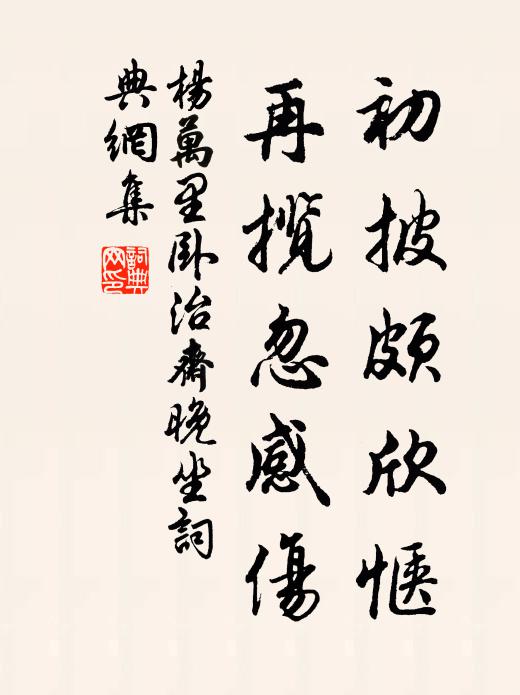 初披頗欣愜
再攬忽感傷
楊萬里卧治齋晚坐詞
典網集
詞典
网印